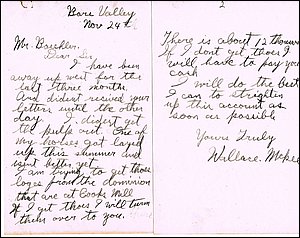 Bare Valley
Nov 24th
Mr. Boechler
Dear Sir,
I have been
away up west for the
last three months
And didert recived your
letters untill the other
day. I didert get
the pulp out. One of
my horses got layed
up this summer and
isent better yet
I am trying to get those
loges from the dominion
that are at Cooks Mill
If I get thoes I will turn
them over to you.
2
There is about 12 thousand
If I dont get thoes I
will have to pay you
cash
I will do the best
I can to strighten
up this account as
soon as possible
Yours Truly
Wallace